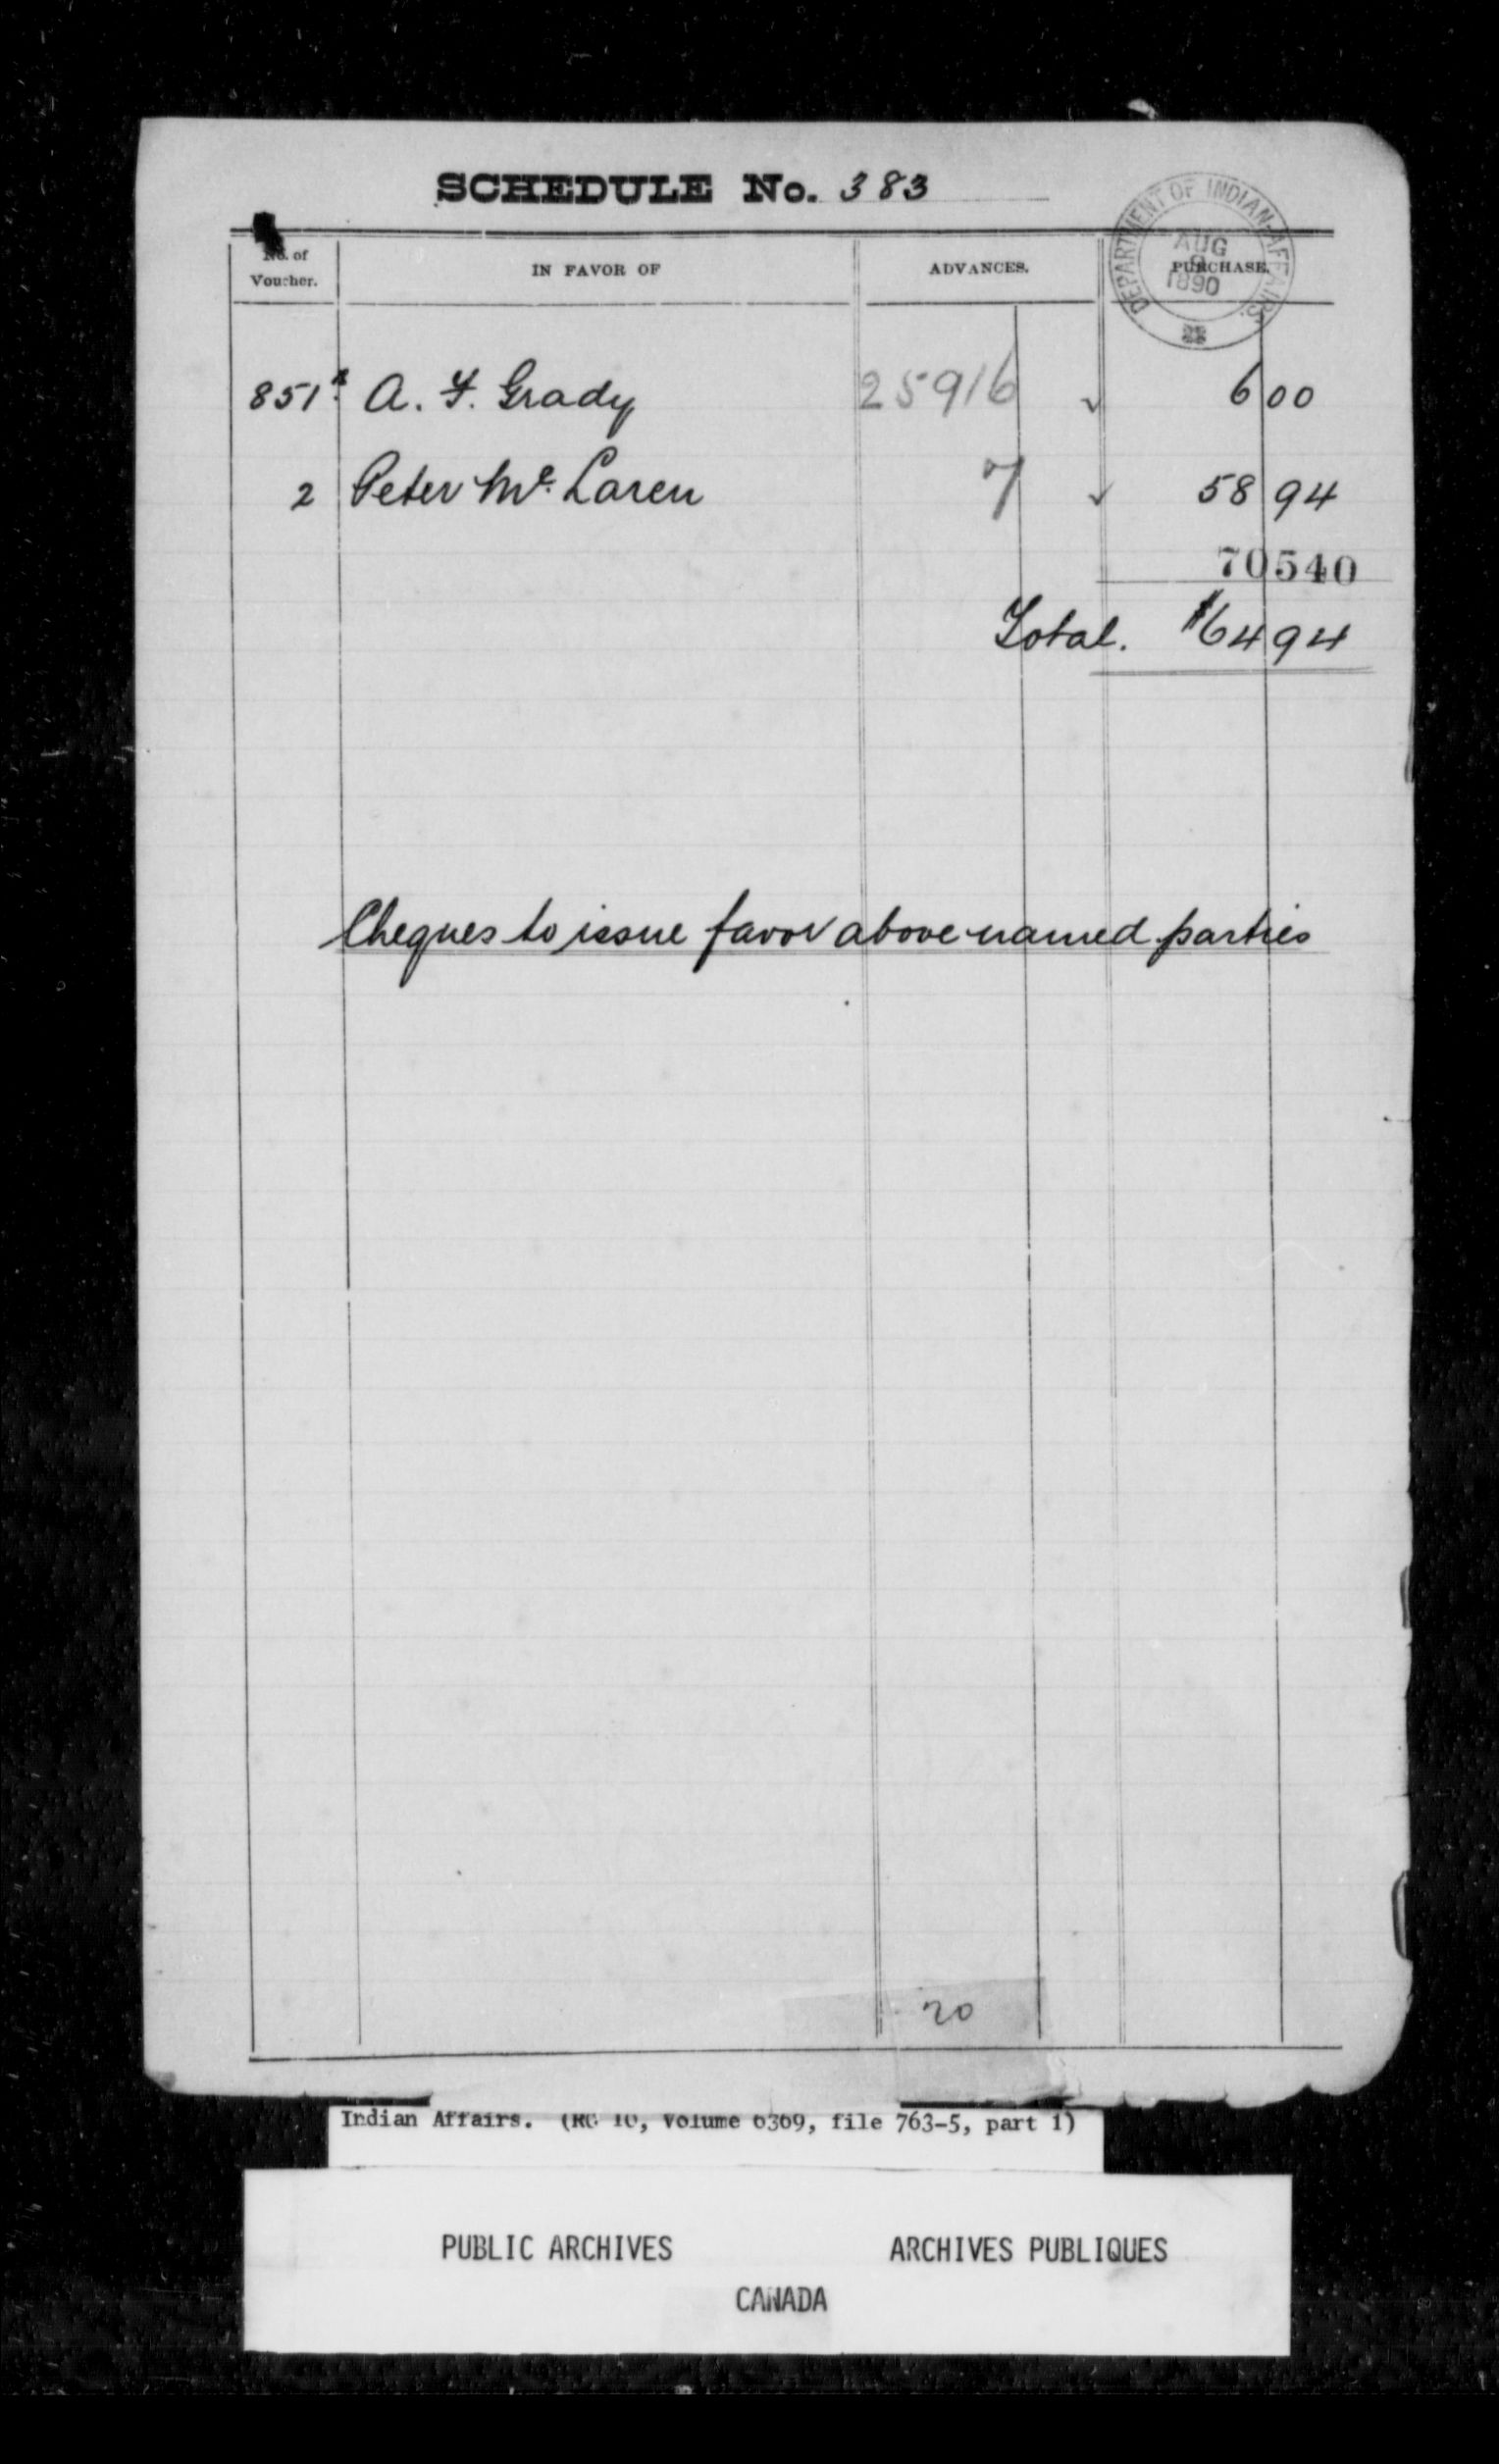 SCHEDULE No. 383
DEPARTMENT OF INDIAN AFFAIRS.
AUG
1890
No. of Voucher.
IN FAVOR OF
ADVANCES.
PURCHASE.
851 A. F. Grady 25916 ✓ 6 00
2 Peter Mc Laren 7 ✓ 58 94
70540
Total. $64 94
Cheques to issue favor above named parties
20
Indian Affairs. (RG 10, Volume 6369, file 763-5, part 1)
PUBLIC ARCHIVES ARCHIVES PUBLIQUES
CANADA